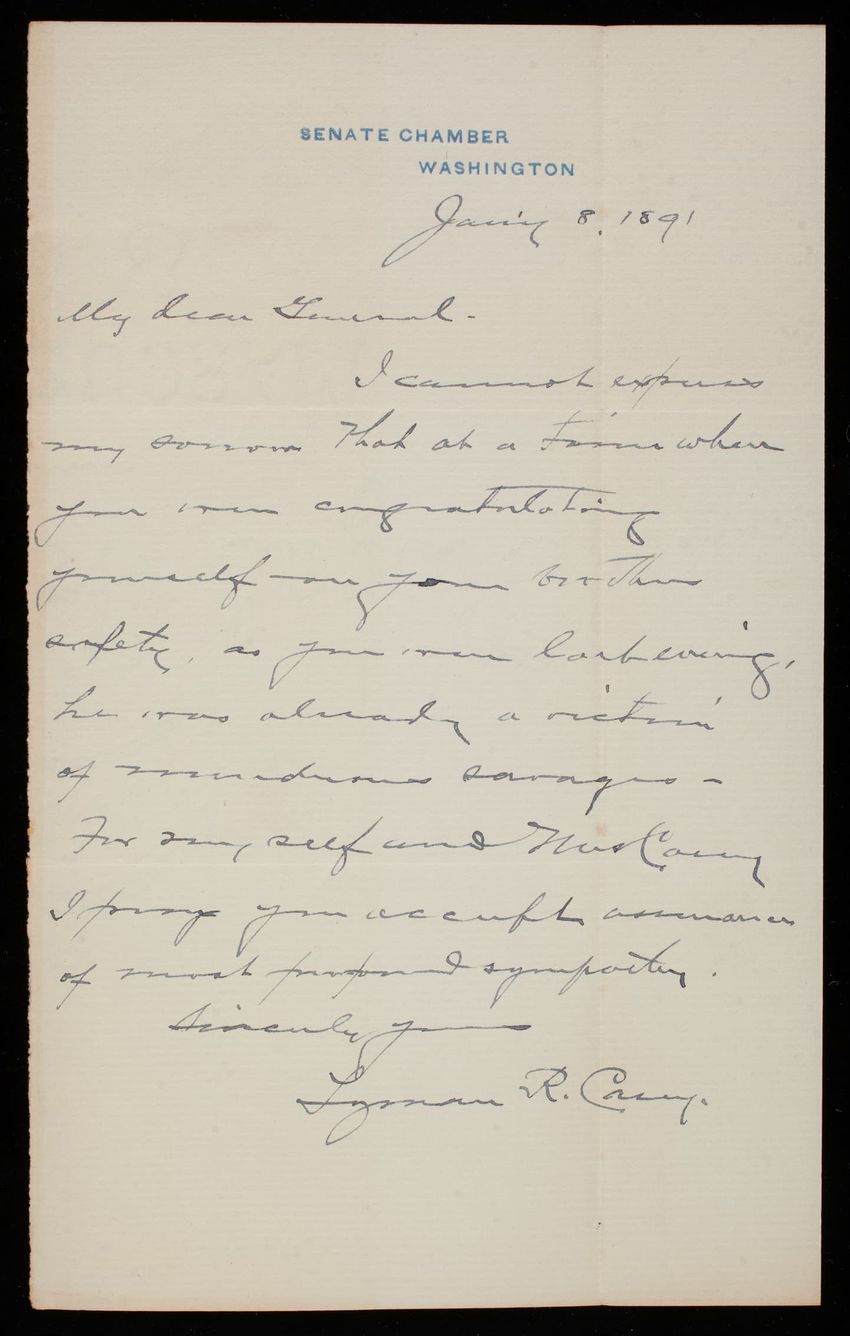 SENATE CHAMBER
WASHINGTON
Jan'y 8, 1891
My dear General -
I cannot express
my sorrow that at a time when
you were congratulating
yourself on your brothers
safety, as you were last evening,
he was already a victim
of murderous savages -
For myself and Mrs Casey
I pray you accept assurances
of most profound sympathy.
Sincerely yours
Lyman R. Casey.